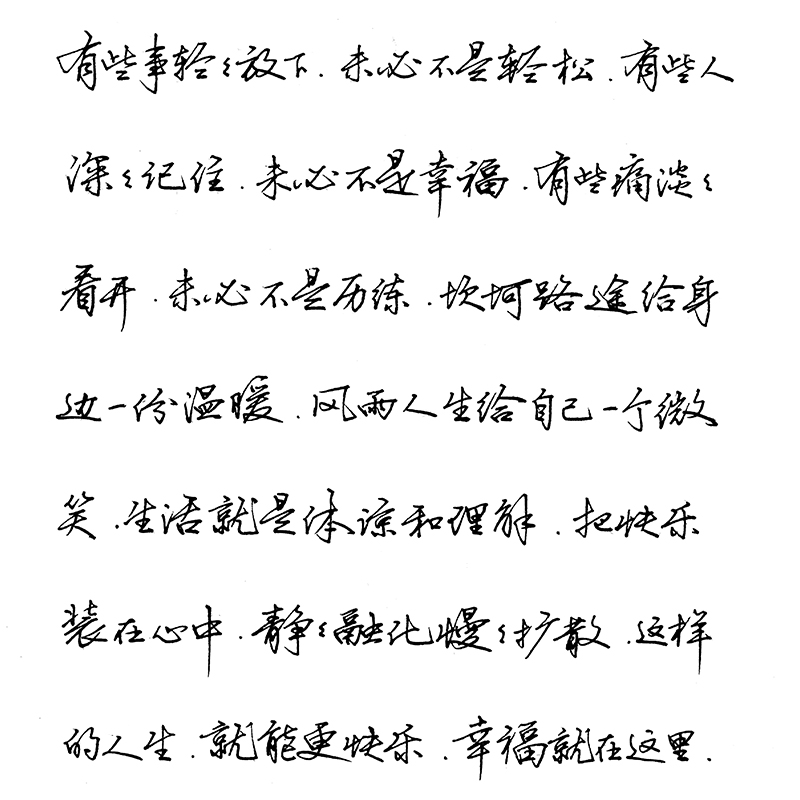 有些事轻々放下.未必不是轻松.有些人
深々记住.未必不是幸福.有些痛淡々
看开.未必不是历练.坎坷路途给身
边一份温暖.风雨人生给自己一个微
笑.生活就是体谅和理解.把快乐
装在心中.静々融化慢々扩散.这样
的人生.就能更快乐.幸福就在这里.